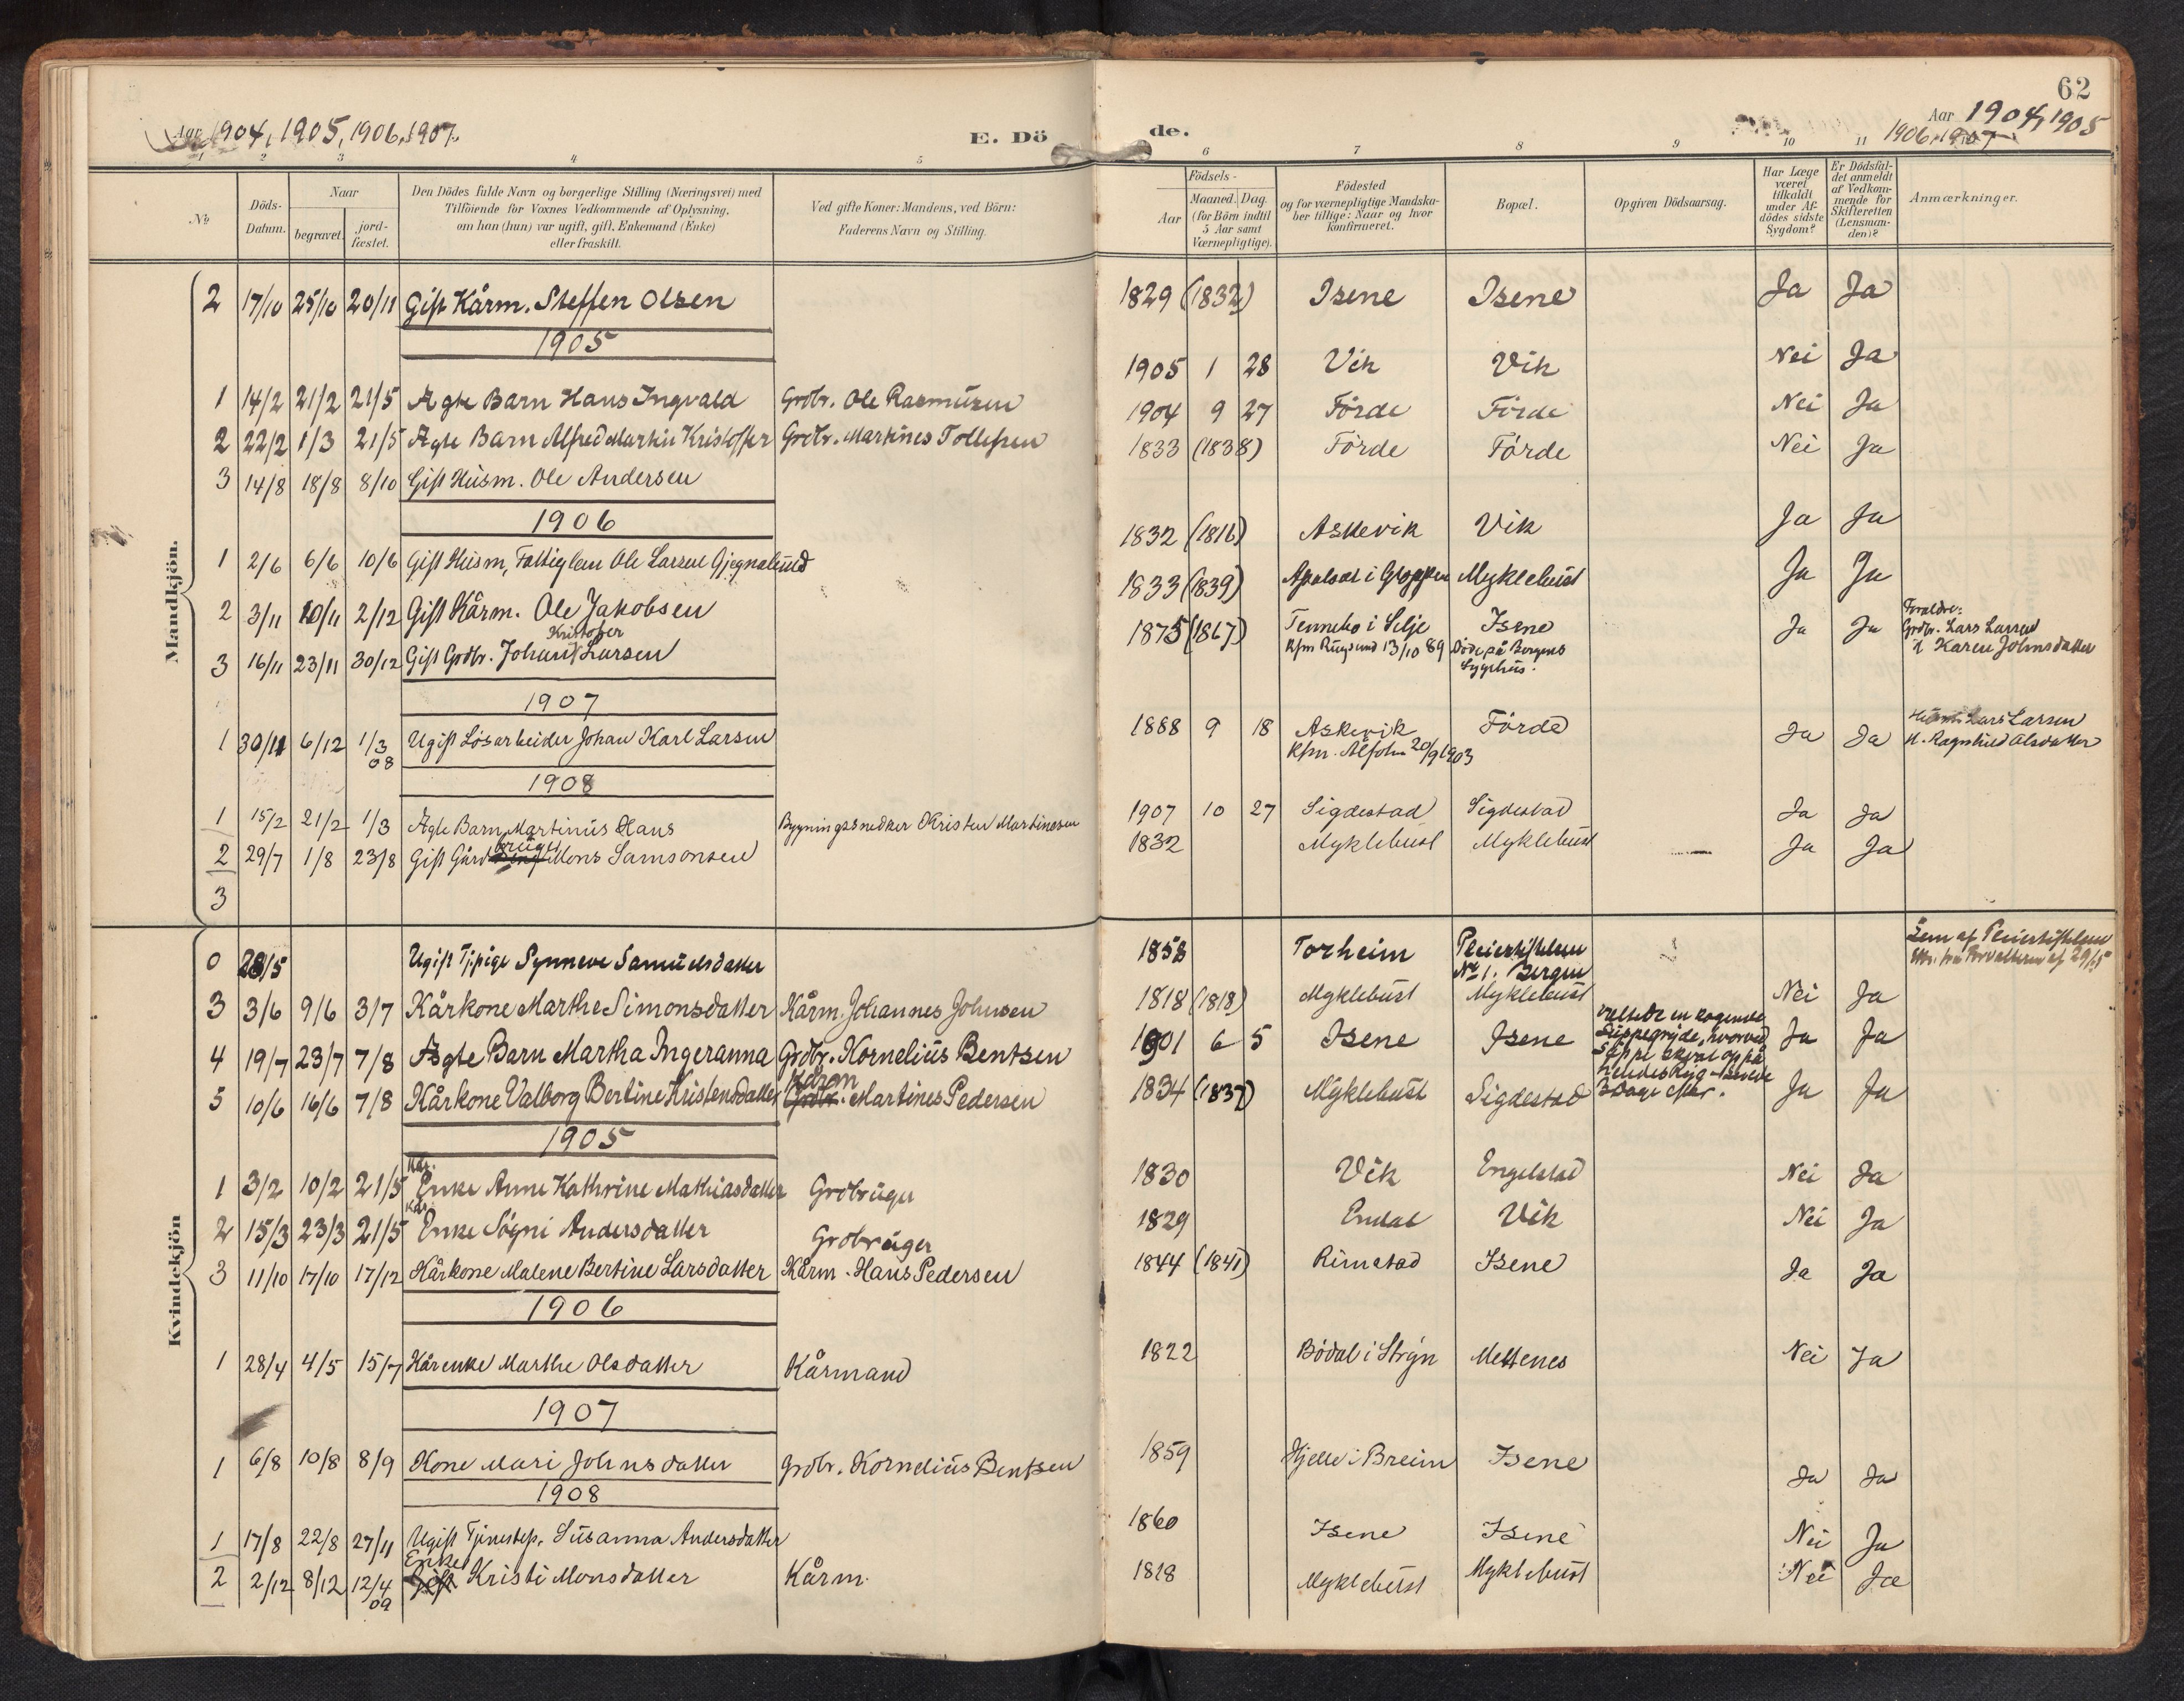 62
Aar 1904, 1905, 1906, 1907.
E. Döde.
Aar 1904, 1905
1906, 1907
1 2 3 4 5 6 7 8 9 10 11
No
Döds-Datum.
Naar
begravet.
jord-fæstet.
Den Dödes fulde Navn og borgerlige Stilling (Næringsvei) med
Tilföiende for Voxnes Vedkommende af Oplysning,
om han (hun) var ugift, gift, Enkemand (Enke)
eller fraskilt.
Ved gifte Koner: Mandens, ved Börn:
Faderens Navn og Stilling.
Födsels-
Aar
Maaned. Dag.
(for Börn indtil
5 Aar samt
Værnepligtige).
Födested
og for værnepligtige Mandska-
ber tillige: Naar og hvor
konfirmeret.
Bopæl.
Opgiven Dödsaarsag.
Har Læge
været
tilkaldt
under Af-
dödes sidste
Sygdom?
Er Dödsfal-
det anmeldt
af Vedkom-
mende for
Skifteretten
(Lensman-
den)?
Anmærkninger.
Mandkjön.
2 17/10 25/10 20/11 Gift Kårm. Steffen Olsen 1829 (1832) Isene Isene Ja Ja
1905
1 14/2 21/2 21/5 Ægte Barn Hans Ingvald Grdbr. Ole Rasmusen 1905 1 28 Vik Vik Nei Ja
2 22/2 1/3 21/5 Ægte Barn Alfred Martin Kristoffer Grdbr. Martines Tollefsen 1904 9 27 Förde Förde Nei Ja
3 14/8 18/8 8/10 Gift Husm. Ole Andersen 1833 (1838) Förde Förde Nei Ja
1906
1 2/6 6/6 10/6 Gift Husm, Fattiglem Ole Larsen Gjegnalund 1832 (1816) Askevik Vik Ja Ja
2 3/11 10/11 2/12 Gift Kårm. Ole Jakobsen 1833 (1839) Apalset i Gloppen Myklebust Ja Ja
3 16/11 23/11 30/12 Gift Grdbr. Johan Kristofer Larsen 1875 (1867) Tennebo i Selje Isene Ja Ja
Kfm Rugsund 13/10 89 Döde på Bergens
Sygehus.
Forældre:
Grdbr. Lars Larsen
Karen Johnsdatter
1907
1 30/11 6/12 1/3 08 Ugift Løsarbeider Johan Karl Larsen 1888 9 18 Askevik Förde Ja Ja
Kfm. Alfoten 20/9 1903
Husm. Lars Larsen
H. Ragnhild Olsdatter
1908
1 15/2 21/2 1/3 Ægte Barn Martinus Hans Bygningssnedker Kristen Martinesen 1907 10 27 Sigdestad Sigdestad Ja Ja
2 29/7 1/8 23/8 Gift Gårdbruger Mons Samsonsen 1832 Myklebust Myklebust — Ja Ja
3
Kvindekjön
0 28/5 Ugift Tjpige Synneve Samuelsdatter 1858 Torheim Pleiestiftelsen
No 1. Bergen
Lem af Pleiestiftelsen
3 3/6 9/6 3/7 Kårkone Marthe Simonsdatter Kårm. Johannes Johnsen 1818 (1818) Myklebust Myklebust Nei Ja
4 19/7 23/7 7/8 Ægte Barn Martha Ingeranna Grdbr. Kornelius Bentsen 1901 6 5 Isene Isene Ja Ja
Væltede en kogende
Suppegryde, hvorved
Suppe skval op på
hendes Ryg – levede
3 Dage efter.
5 10/6 16/6 7/8 Kårkone Valborg Bertine Kristensdatter Kårm Grdbr. Martines Pedersen 1834 (1837) Myklebust Sigdestad Ja Ja
1905
1 3/2 10/2 21/5 Kår. Enke Anne Kathrine Mathiasdatter Grdbruger 1830 Vik Engelstad Nei Ja
2 15/3 23/3 21/5 Kår. Enke Sögni Andersdatter Grdbruger 1829 Endal Vik Nei Ja
3 11/10 17/10 17/12 Kårkone Malene Bertine Larsdatter Kårm. Hans Pedersen 1844 (1841) Rimstad Isene Ja Ja
1906
1 28/4 4/5 15/7 Kårenke Marthe Olsdatter Kårmand 1822 Bödal i Stryn Mettenes Nei Ja
1907
1 6/8 10/8 8/9 Kone Mari Johnsdatter Grdbr. Kornelius Bentsen 1859 Hjelle i Breim Isene Ja Ja
1908
1 17/8 22/8 27/11 Ugift Tjenestep. Susanna Andersdatter 1860 Isene Isene Nei Ja
2 2/12 8/12 12/4 09 Enke Gift Kristi Monsdatter Kårm. 1828 Myklebust Myklebust Nei Ja